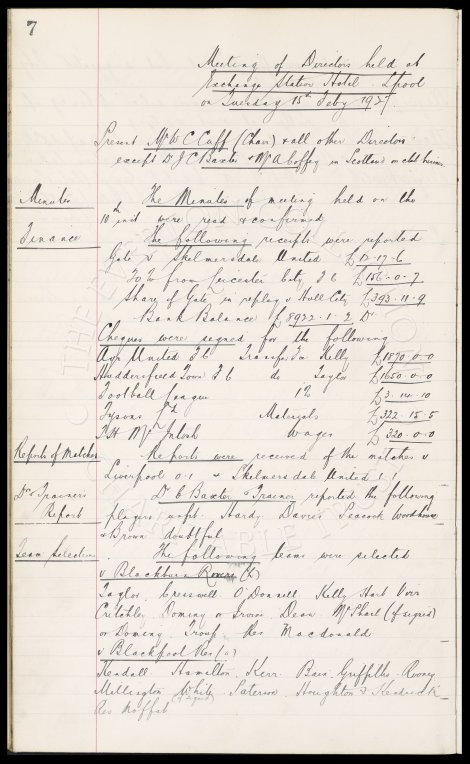 7
Meeting of Directors held at
Exchange Station Hotel L'pool
on Tuesday 15th Feby 1927.
Present Mr W C Cuff (Chair) & all other Directors
except Dr J C Baxter & Mr A Coffey in Scotland on club business
Minutes
The Minutes of meeting held on the
10th inst were read & confirmed
Finance
The following receipts were reported
Gate v Skelmersdale United £15-17-6
20% from Leicester City F C £156-0-7
Share of Gate in replay v Hull City £393-11-9
Bank Balance £8922-1-2 Dr
Cheques were signed for the following
Ayr United F C Transfer Fee Kelly £1870-0-0
Huddersfield Town F C do Taylor £1650-0-0
Football League 1% £3-14-10
Tysons Materials £322-15-5
T H McIntosh Wages £320-0-0
Reports of Matches
Reports were received of the matches v
Liverpool 0-1 & Skelmersdale United
Dr & Trainers
Report
Dr C Baxter & Trainer reported the following
players unfit. Hardy Davies Peacock Woodhouse
& Brown doubtful
Team Selection
The following teams were selected
v Blackburn Rovers (h)
Taylor Cresswell O'Donnell Kelly Hart Virr
Critchley Dominy or Irvine Dean McPhail (if signed)
or Dominy Troup Res Macdonald
v Blackpool Res (a)
Kendall Hamilton Kerr Bain Griffiths Rooney
Millington White (if signed) Paterson Houghton & Kendrick
Res Moffat